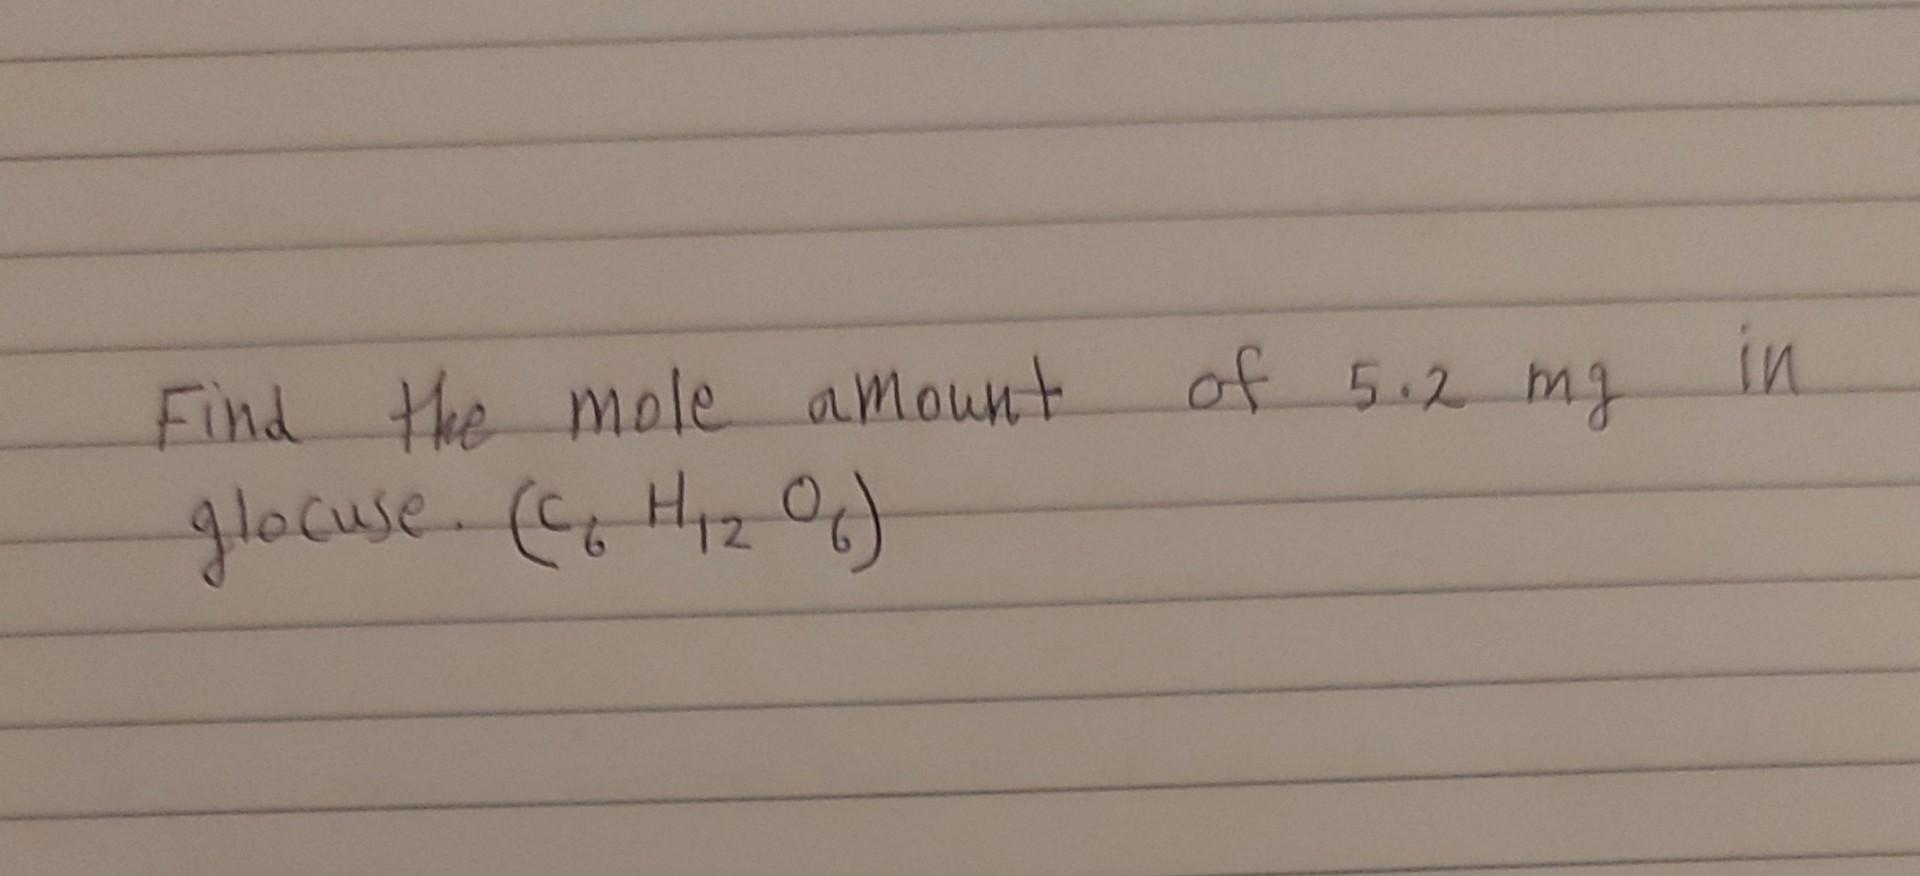 Find the mole amount of 5.2 mg in
glocuse. (C₆ H₁₂ O₆)